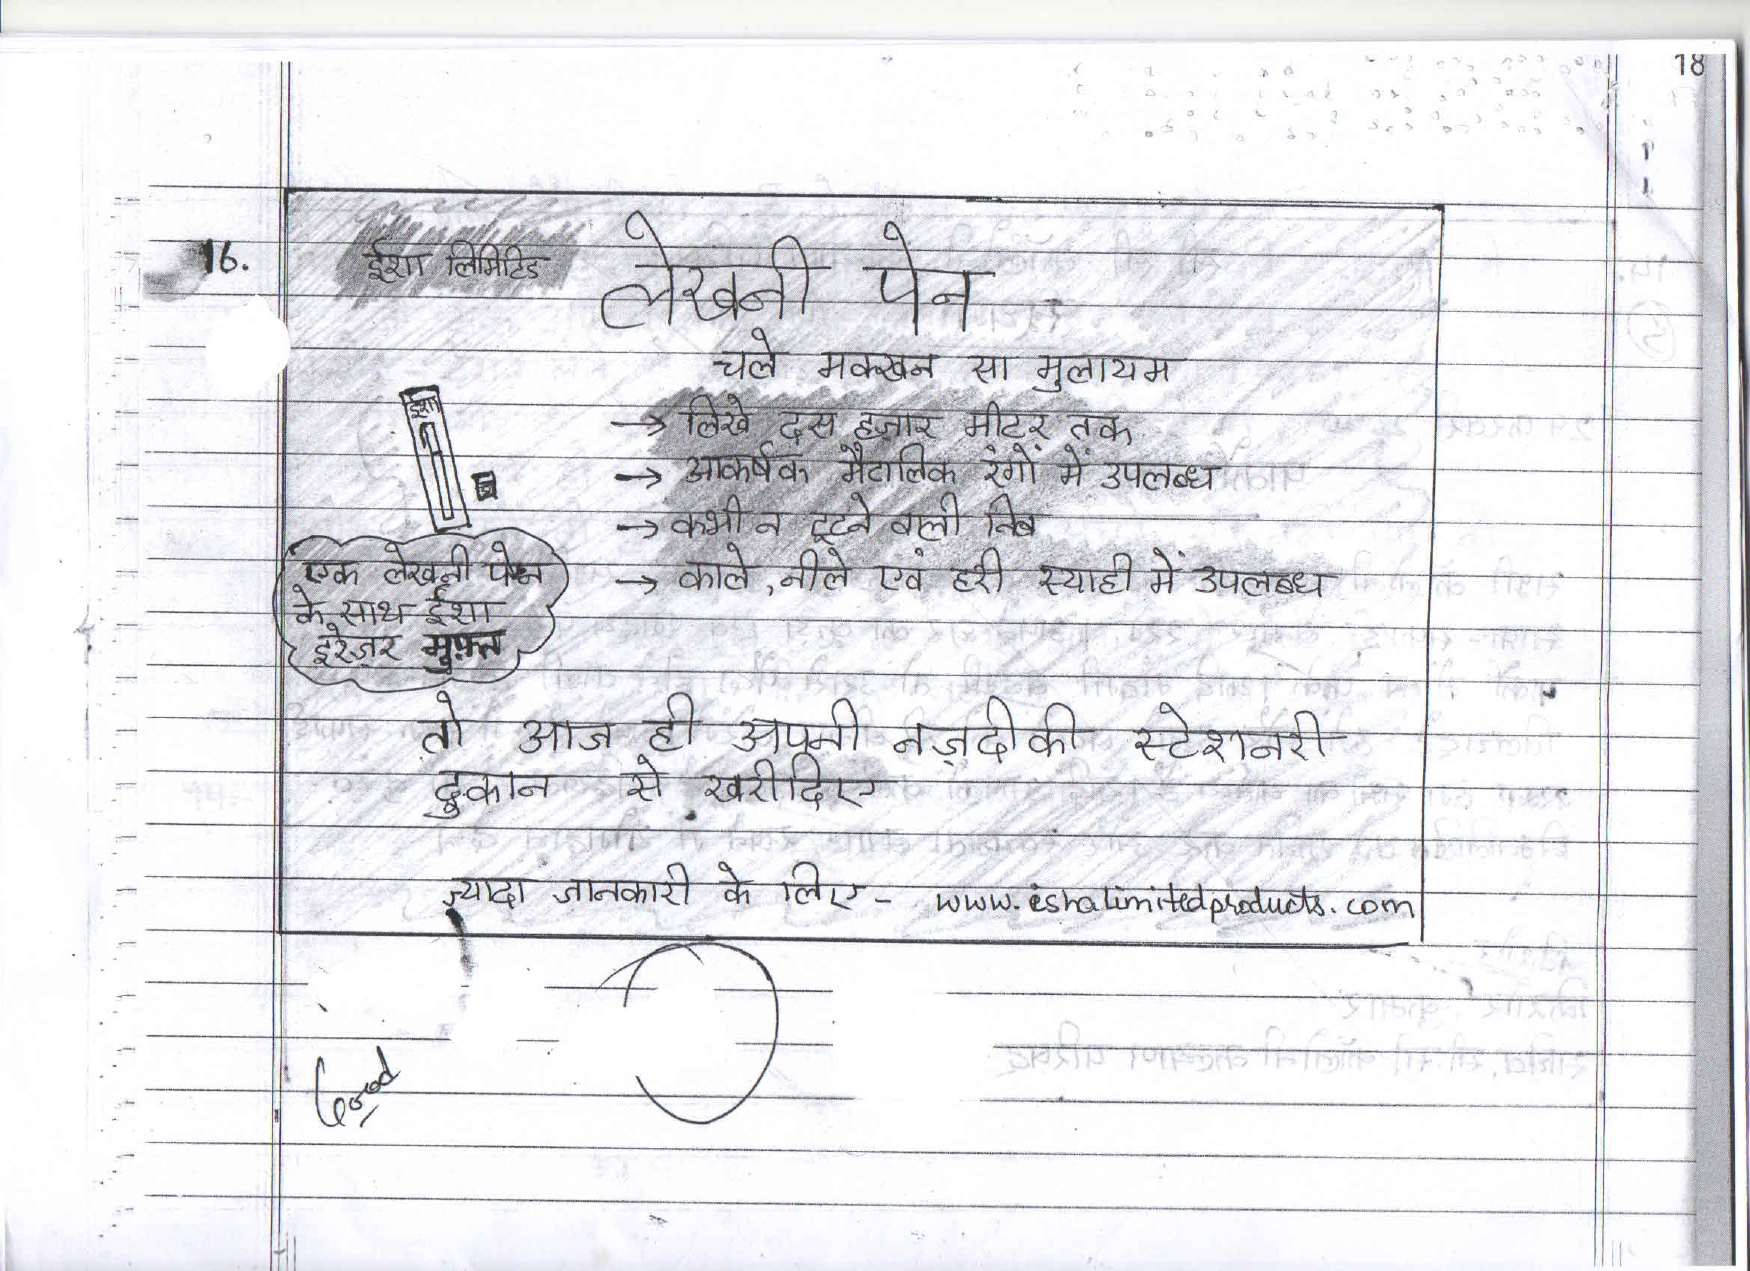 18
16.
ईशा लिमिटिड
लेखनी पेन
चले मक्खन सा मुलायम
→ लिखे दस हज़ार मीटर तक
→ आकर्षक मैटालिक रंगों में उपलब्ध
→ कभी न टूटने वाली निब
→ काले, नीले एवं हरी स्याही में उपलब्ध
ईशा
एक लेखनी पेन
के साथ ईशा
इरेज़र मुफ़्त
तो आज ही अपनी नज़्दीकी स्टेशनरी
दुकान से खरीदिए
ज़्यादा जानकारी के लिए - www.eshalimitedproducts.com
Good